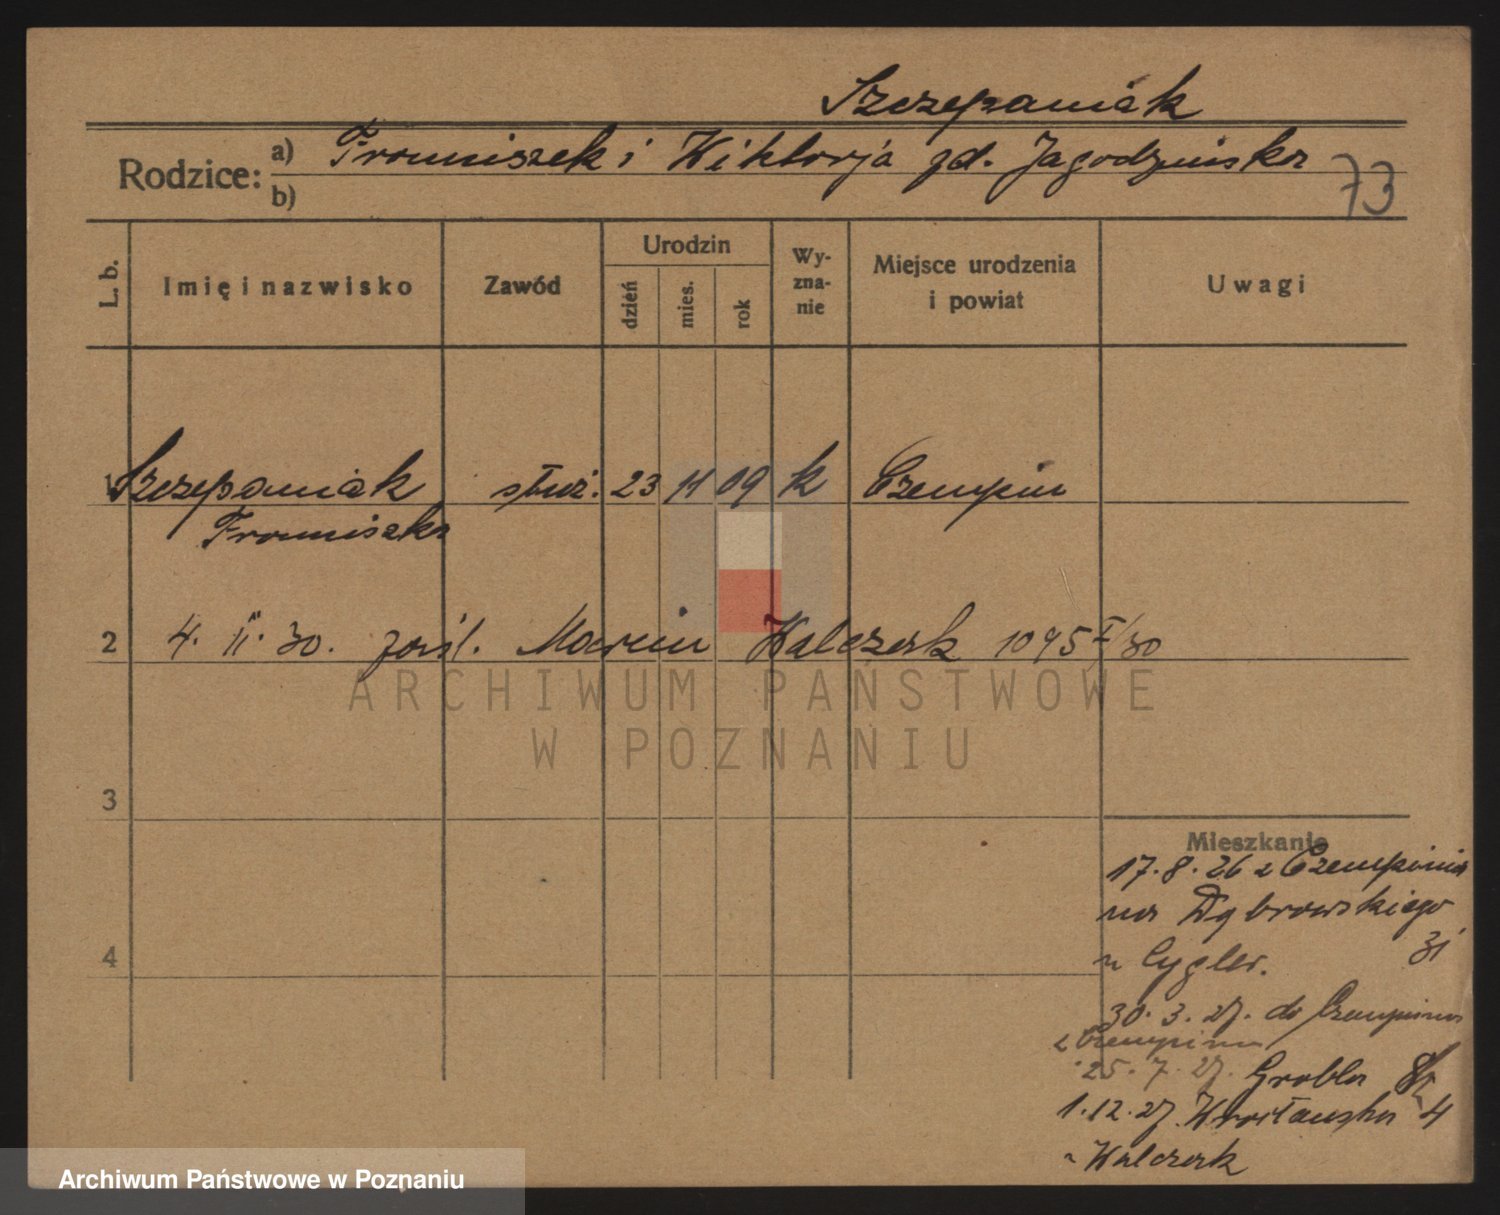 Szczepaniak
Rodzice:
a) Franciszek i Wiktorja zd. Jagodzińska
b)
73
L. b.
Imię i nazwisko
Zawód
Urodzin
dzień
mies.
rok
Wy-
zna-
nie
Miejsce urodzenia
i powiat
Uwagi
1 Szczepaniak służ. 23 11 09 k Czempin
Franciszka
2 4. II. 30. zaśl. Marcin Walczak 1095 I/30
ARCHIWUM PAŃSTWOWE
W POZNANIU
3
Mieszkanie
17.8.26 z Czempinia
na Dąbrowskiego
31
u Cygler.
4
30.3.27. do Czempinia
z Czempinia
25.7.27. Grobla
1.12.27 Wrocławska 4
u Walczak
Archiwum Państwowe w Poznaniu